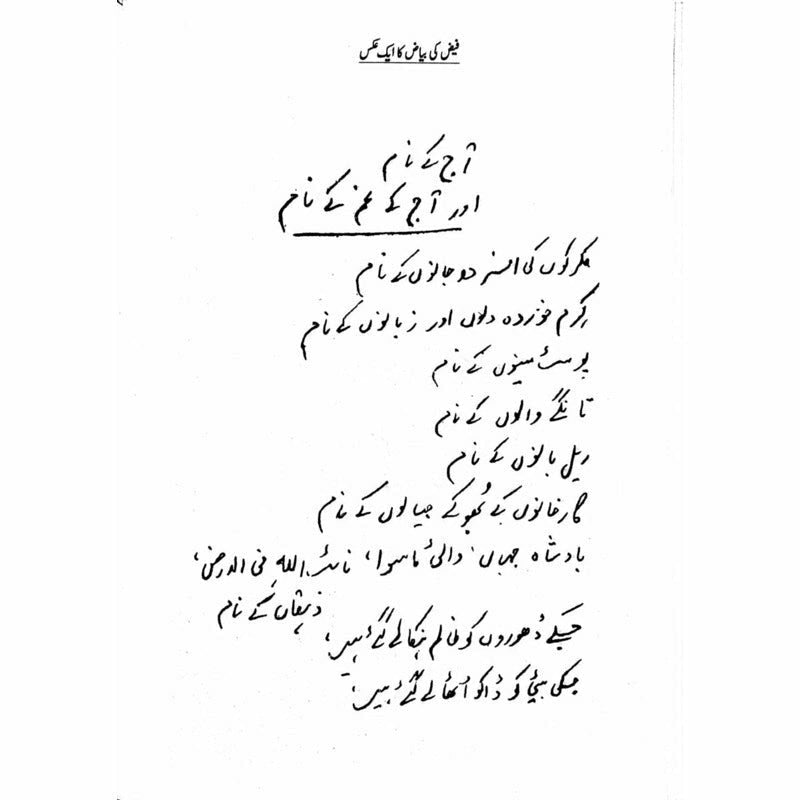 فیض کی بیاض کا ایک عکس
آج کے نام
اور آج کے غم کے نام
کلرکوں کی افسردہ جانوں کے نام
کِرم خوردہ دلوں اور زبانوں کے نام
پوسٹ مینوں کے نام
تانگے والوں کے نام
ریل بانوں کے نام
کارخانوں کے بُھوکے جیالوں کے نام
بادشاہِ جہاں، والیٔ ماسوا، نائب اللہ فی الارض،
دہقاں کے نام
جسکے ڈھوروں کو ظالم ہنکا لے گئے ہیں،
جسکی بیٹی کو ڈاکو اُٹھا لے گئے ہیں،